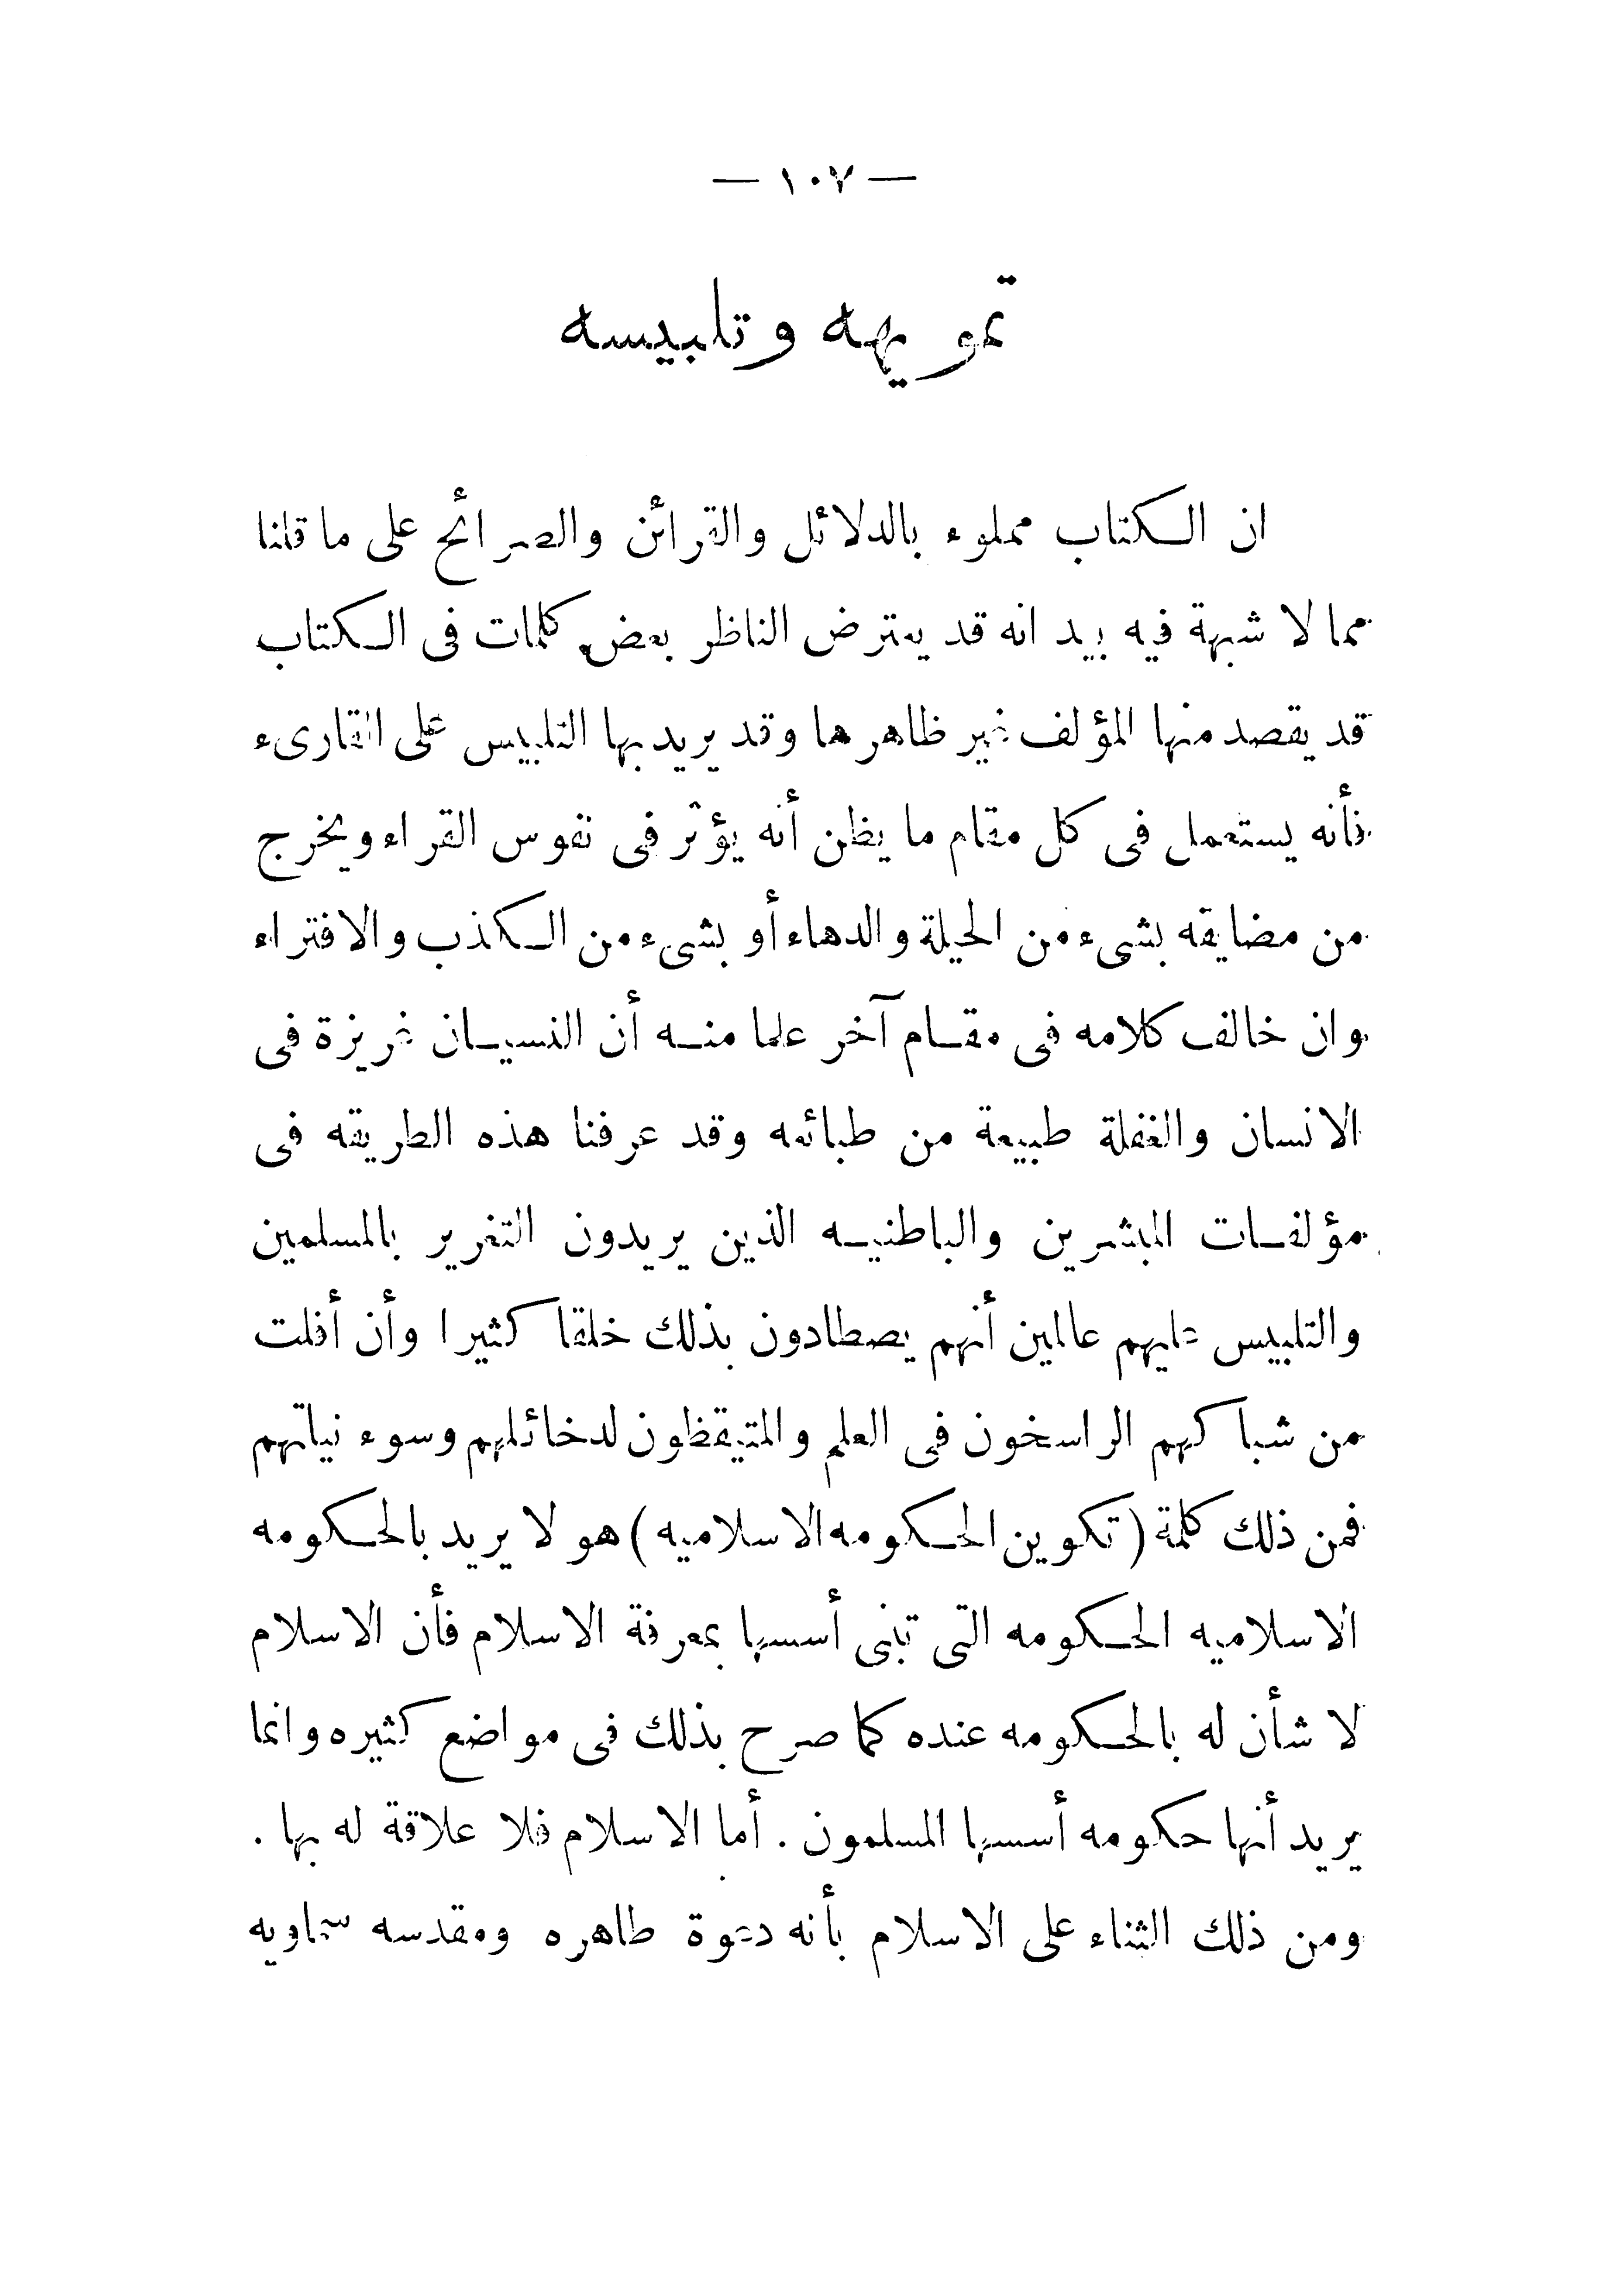 — ١٠٧ —
تمويهه وتلبيسه
ان الكتاب مملوء بالدلائل والقرائن والصرائح على ما قلنا
مما لا شبهة فيه بيد انه قد يعترض الناظر بعض كلمات فى الكتاب
قد يقصد منها المؤلف غير ظاهرها وقد يريد بها التلبيس على القارىء
فأنه يستعمل فى كل مقام ما يظن أنه يؤثر فى نفوس القراء ويخرج
من مضايقه بشىء من الحيلة والدهاء أو بشىء من الكذب والافتراء
وان خالف كلامه فى مقام آخر علما منه أن النسيان غريزة فى
الانسان والغفلة طبيعة من طبائعه وقد عرفنا هذه الطريقه فى
مؤلفات المبشرين والباطنيه الذين يريدون التغرير بالمسلمين
والتلبيس عليهم عالمين أنهم يصطادون بذلك خلقا كثيرا وأن أفلت
من شباكهم الراسخون فى العلم والمتيقظون لدخائلهم وسوء نياتهم
فمن ذلك كلمة (تكوين الحكومه الاسلاميه) هو لا يريد بالحكومه
الاسلاميه الحكومه التى تبنى أسسها بمعرفة الاسلام فأن الاسلام
لا شأن له بالحكومه عنده كما صرح بذلك فى مواضع كثيره وانما
يريد أنها حكومه أسسها المسلمون . أما الاسلام فلا علاقة له بها .
ومن ذلك الثناء على الاسلام بأنه دعوة طاهره ومقدسه سماويه